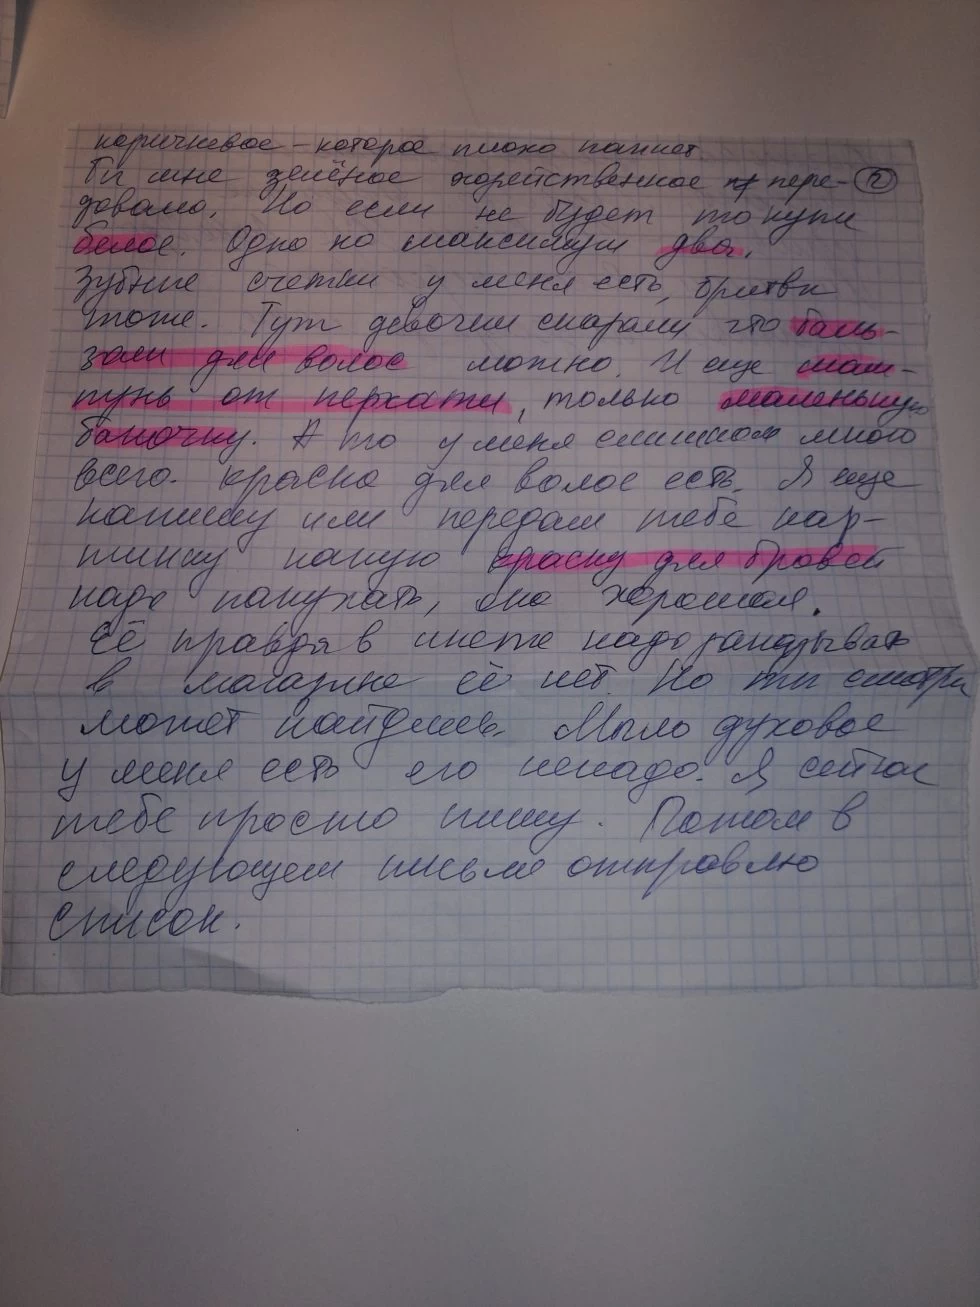 коричневое - которое плохо пахнет.
Ты мне зелёное хозяйственное пере- 2
довала. Но если не будет то купи
белое. Одно но максимум два.
Зубные счетки у меня есть, бритвы
тоже. Тут девочки сказали что баль-
зам для волос можно. И еще шам-
пунь от перхати, только маленькую
баночку. А то у меня слишком много
всего. Краска для волос есть. Я еще
напишу или передам тебе кар-
тинку какую краску для бровей
надо покупать, она хорошая.
Её правда в инете надо заказывать
в магазине её нет. Но ты смотри
может найдешь. Мыло духовое
у меня есть его ненадо. Я сейчас
тебе просто пишу. Потом в
следующем письме отправлю
список.